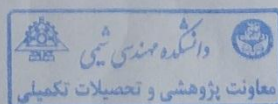 دانشکده مهندسی شیمی
معاونت پژوهشی و تحصیلات تکمیلی